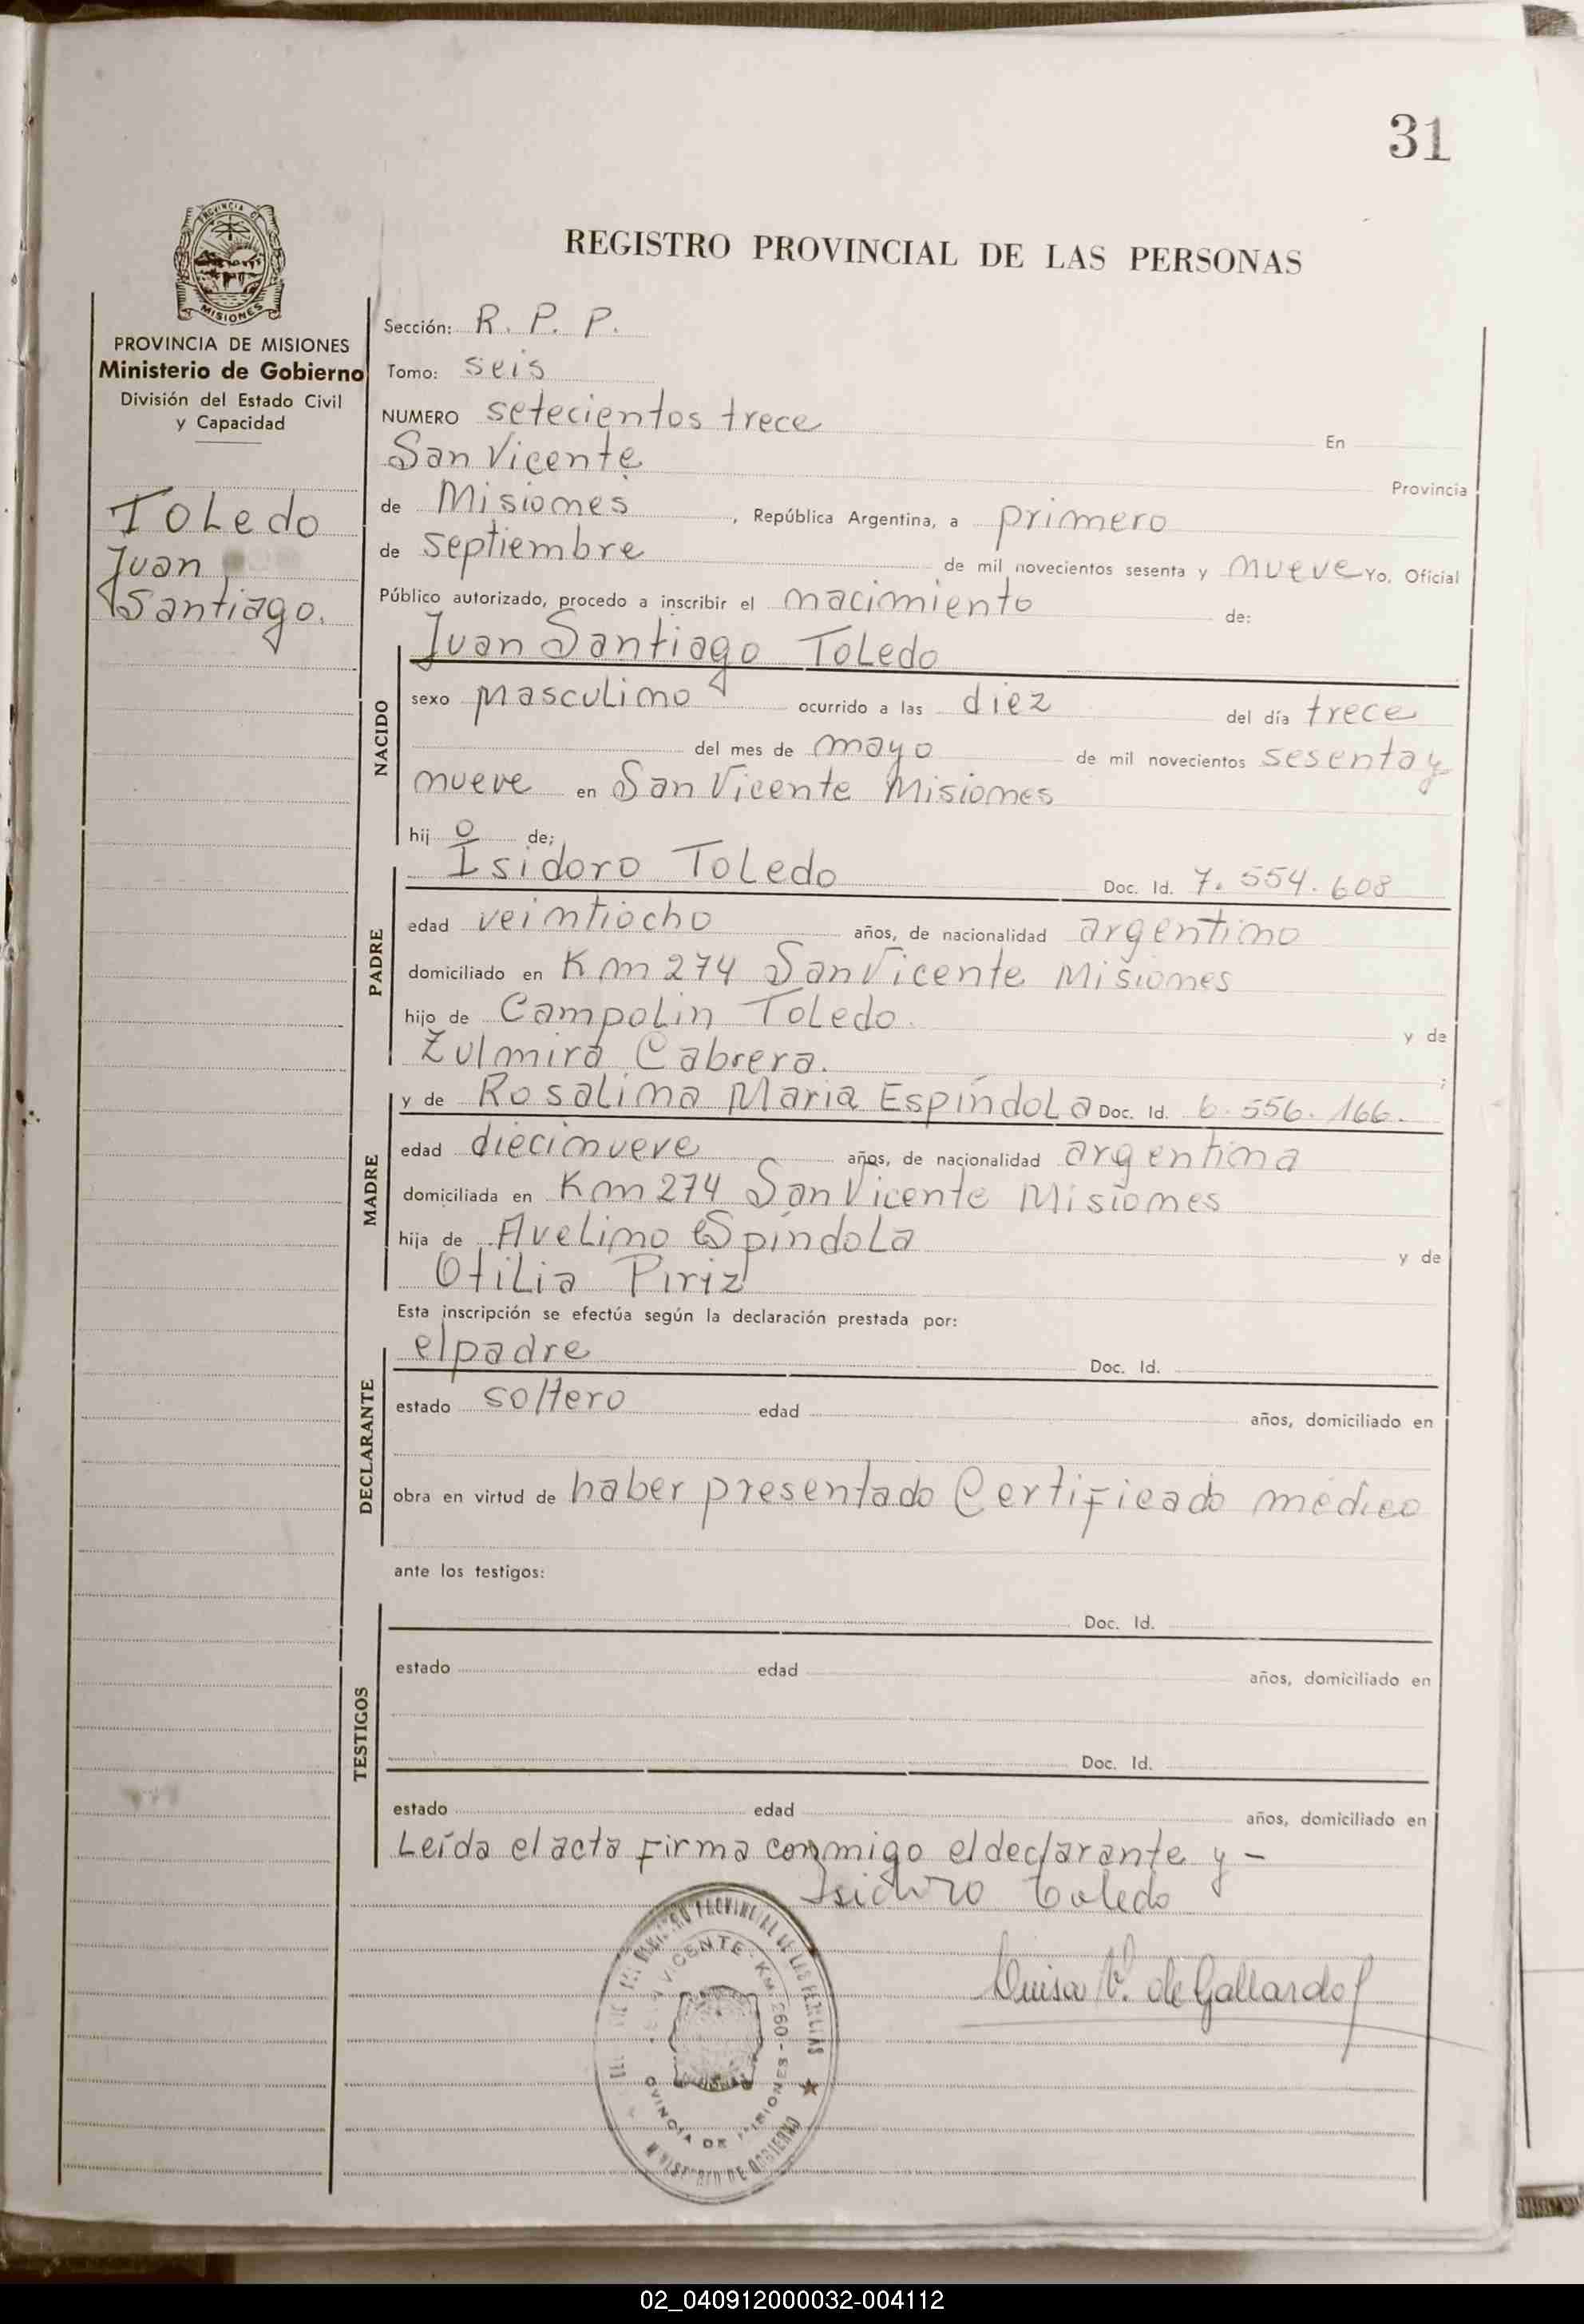 31
PROVINCIA DE
MISIONES
REGISTRO PROVINCIAL DE LAS PERSONAS
PROVINCIA DE MISIONES
Ministerio de Gobierno
División del Estado Civil
y Capacidad
Toledo
Juan
Santiago.
Sección: R. P. P.
Tomo: seis
NUMERO setecientos trece En
San Vicente Provincia
de Misiones, República Argentina, a primero
de septiembre de mil novecientos sesenta y nueve Yo, Oficial
Público autorizado, procedo a inscribir el nacimiento de:
NACIDO
Juan Santiago Toledo
sexo masculino ocurrido a las diez del día trece
del mes de mayo de mil novecientos sesenta y
nueve en San Vicente Misiones
hij o de;
PADRE
Isidoro Toledo Doc. Id. 7.554.608
edad veintiocho años, de nacionalidad argentino
domiciliado en Km 274 San Vicente Misiones
hijo de Campolin Toledo. y de
Zulmira Cabrera. ;
MADRE
y de Rosalina Maria Espíndola Doc. Id. 6.556.166.
edad diecinueve años, de nacionalidad argentina
domiciliada en Km 274 San Vicente Misiones
hija de Avelino Espíndola y de
Otilia Piriz
Esta inscripción se efectúa según la declaración prestada por:
DECLARANTE
el padre Doc. Id.
estado soltero edad años, domiciliado en
obra en virtud de haber presentado Certificado médico
ante los testigos:
TESTIGOS
Doc. Id.
estado edad años, domiciliado en
Doc. Id.
estado edad años, domiciliado en
Leída el acta firma conmigo el declarante y -
Isidoro Toledo
Luisa V. de Gallardo
REGISTRO PROVINCIAL DE LAS PERSONAS
VICENTE - Km. 260 - MISIONES
PROVINCIA DE
MINISTERIO DE GOBIERNO
02_040912000032-004112